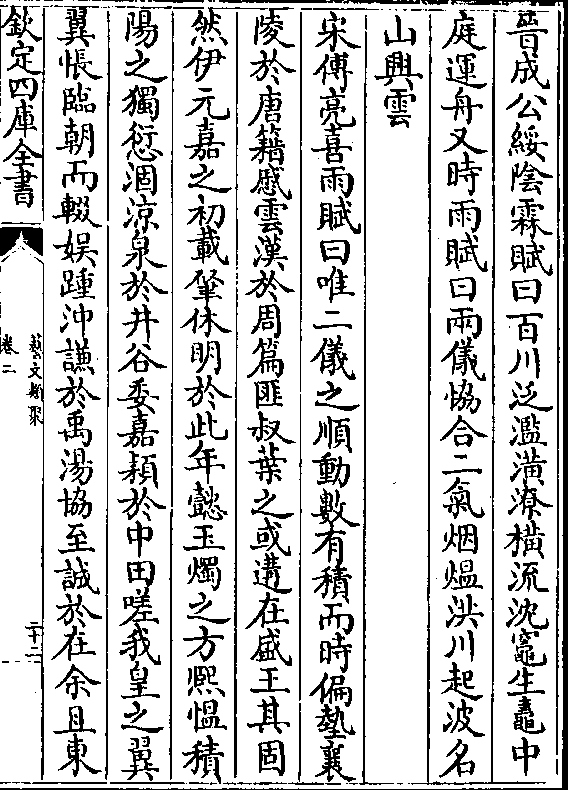 晉成公綏陰霖賦曰百川泛濫潢潦橫流沈竈生鼃中
庭運舟又時雨賦曰兩儀協合二氣烟熅洪川起波名
山興雲
宋傅亮喜雨賦曰唯二儀之順動數有積而時偏墊襄
陵於唐籍慼雲漢於周篇匪叔葉之或遘在盛王其固
然伊元嘉之初載肇休明於此年懿玉燭之方熈愠積
陽之獨愆涸涼泉於井谷委嘉穎於中田嗟我皇之翼
翼悵臨朝而輟娱踵沖謙於禹湯協至誠於在余且東
欽定四庫全書
藝文類聚
卷二
二十二